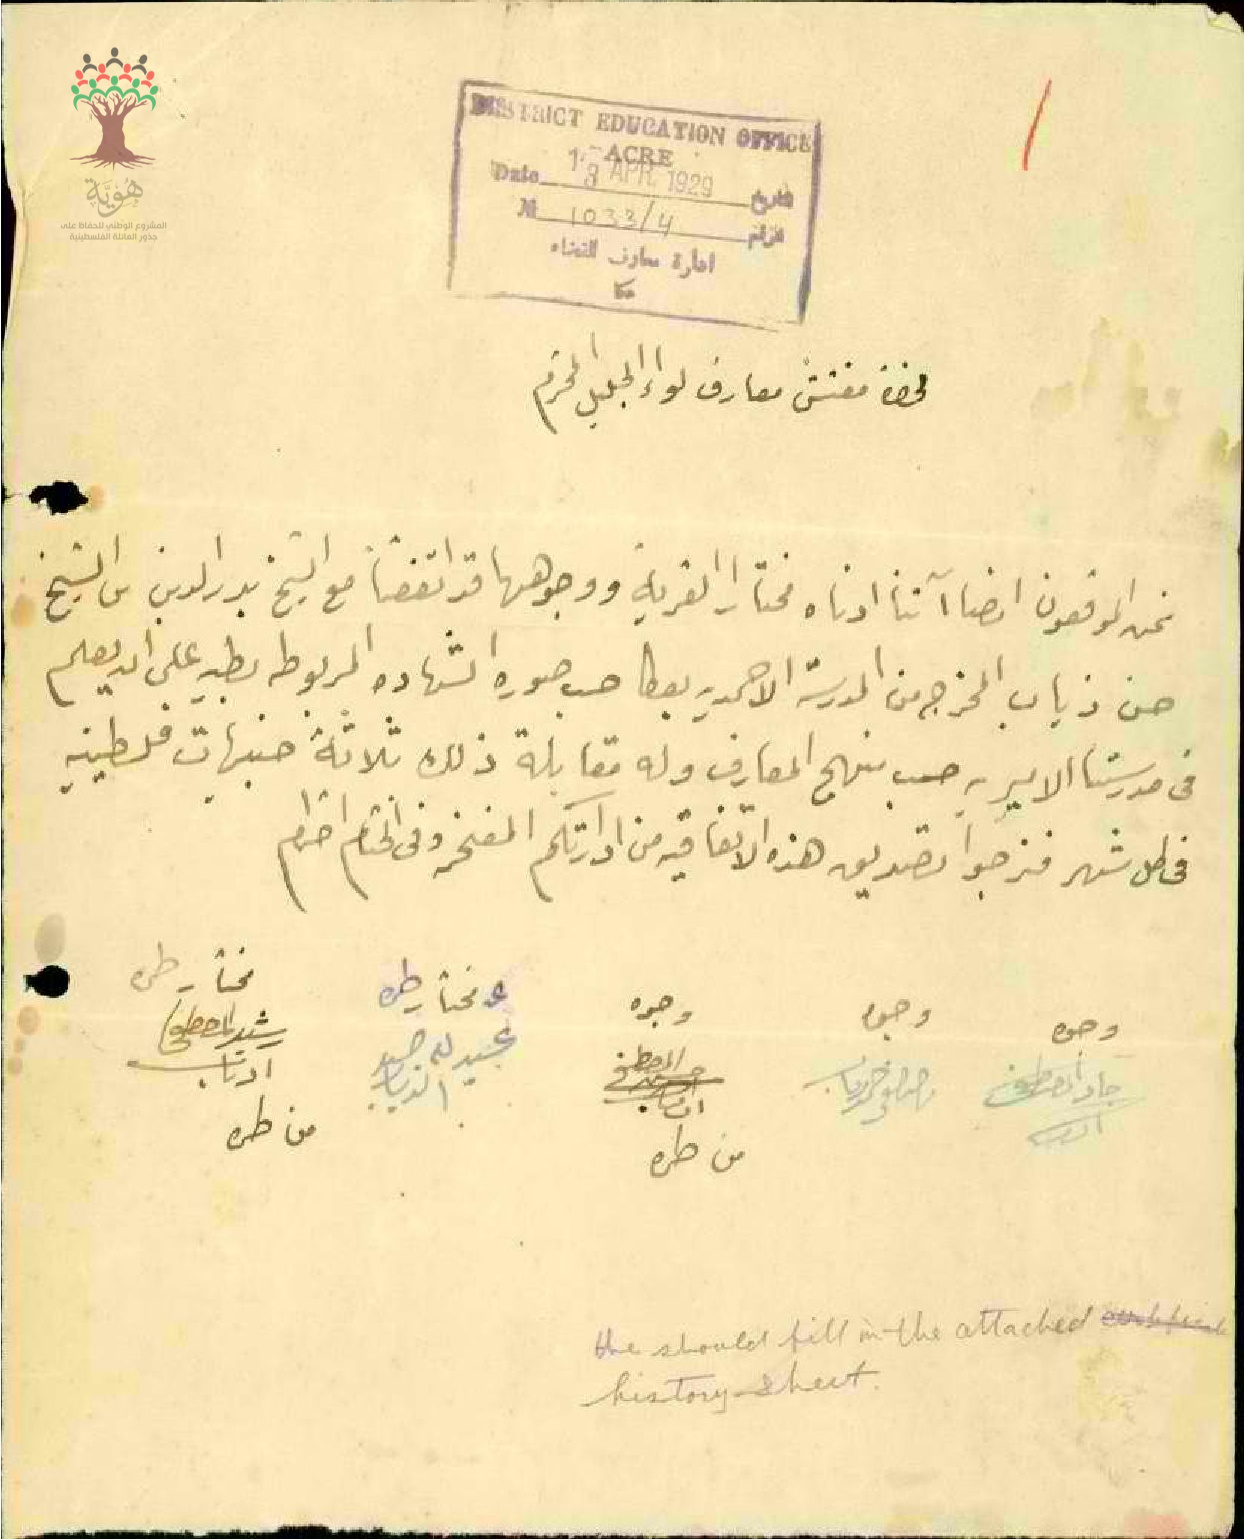 هُوِيَّة
المشروع الوطني للحفاظ على
جذور العائلة الفلسطينية
DISTRICT EDUCATION OFFICE
ACRE
Date 18 APR. 1929 التاريخ
№ 1033/4 الرقم
ادارة معارف القضاء
عكا
لحضرة مفتش معارف لواء الجليل المحترم
نحن الموقعون امضاآتنا ادناه مختارا القرية ووجوهها قد اتفقنا مع الشيخ بدر الدين بن الشيخ
حسن ذياب المخرج من المدرسة الاحمديه بعكا حسب صورة الشهاده المربوطه بطيه على انه يعلم
في مدرستنا الاميريه حسب منهج المعارف وله مقابلة ذلك ثلاثة جنيهات فلسطينيه
في كل شهر فنرجوا تصديق هذه الاتفاقيه من ادارتكم المفخمه وفي الختام احترام
وجوه
وجوه
وجوه
مختار طره
مختار طره
جاد المصطفى
المصطفى
رشيد المصطفى
الذياب
من طره
من طره
He should fill in the attached
history sheet.